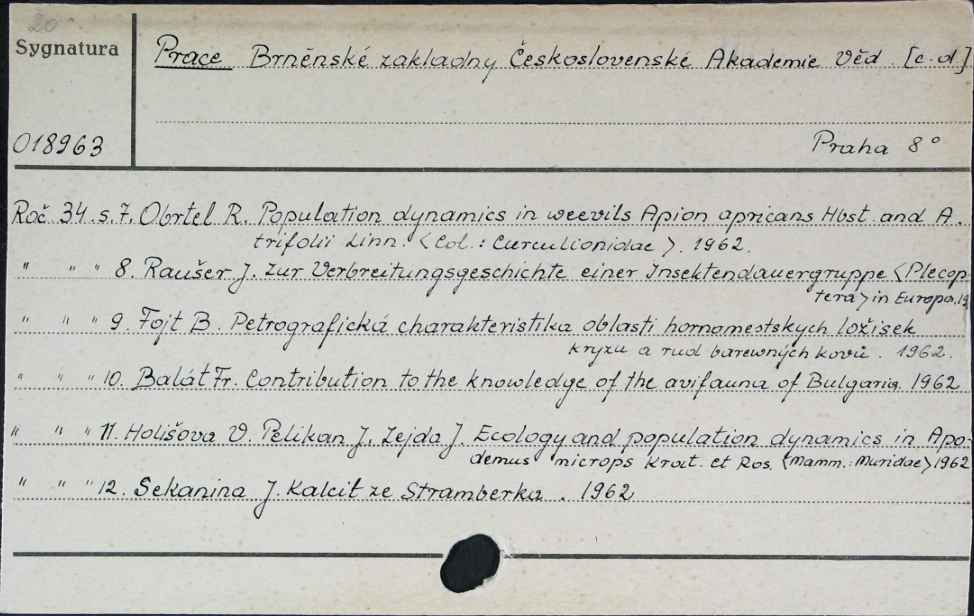 20
Sygnatura
Prace Brněnské zakladny Československé Akademie Věd. [c.d.]
018963
Praha 8°
Roč. 34. s. 7. Obrtel R. Population dynamics in weevils Apion apricans Hbst. and A.
trifolii Linn. <Col.: Curculionidae>. 1962.
" " " 8. Raušer J. Zur Verbreitungsgeschichte einer Insektendauergruppe <Plecop
tera> in Europa. 19
" " " 9. Fojt B. Petrografická charakteristika oblasti hornomestskych ložisek
kryzu a rud barewných kovů. 1962.
" " " 10. Balát Fr. Contribution to the knowledge of the avifauna of Bulgaria. 1962
" " " 11. Holišova V. Pelikan J. Zejda J. Ecology and population dynamics in Apo-
demus microps Krat. et Ros. <Mamm.: Muridae> 1962
" " " 12. Sekanina J. Kalcit ze Stramberka. 1962